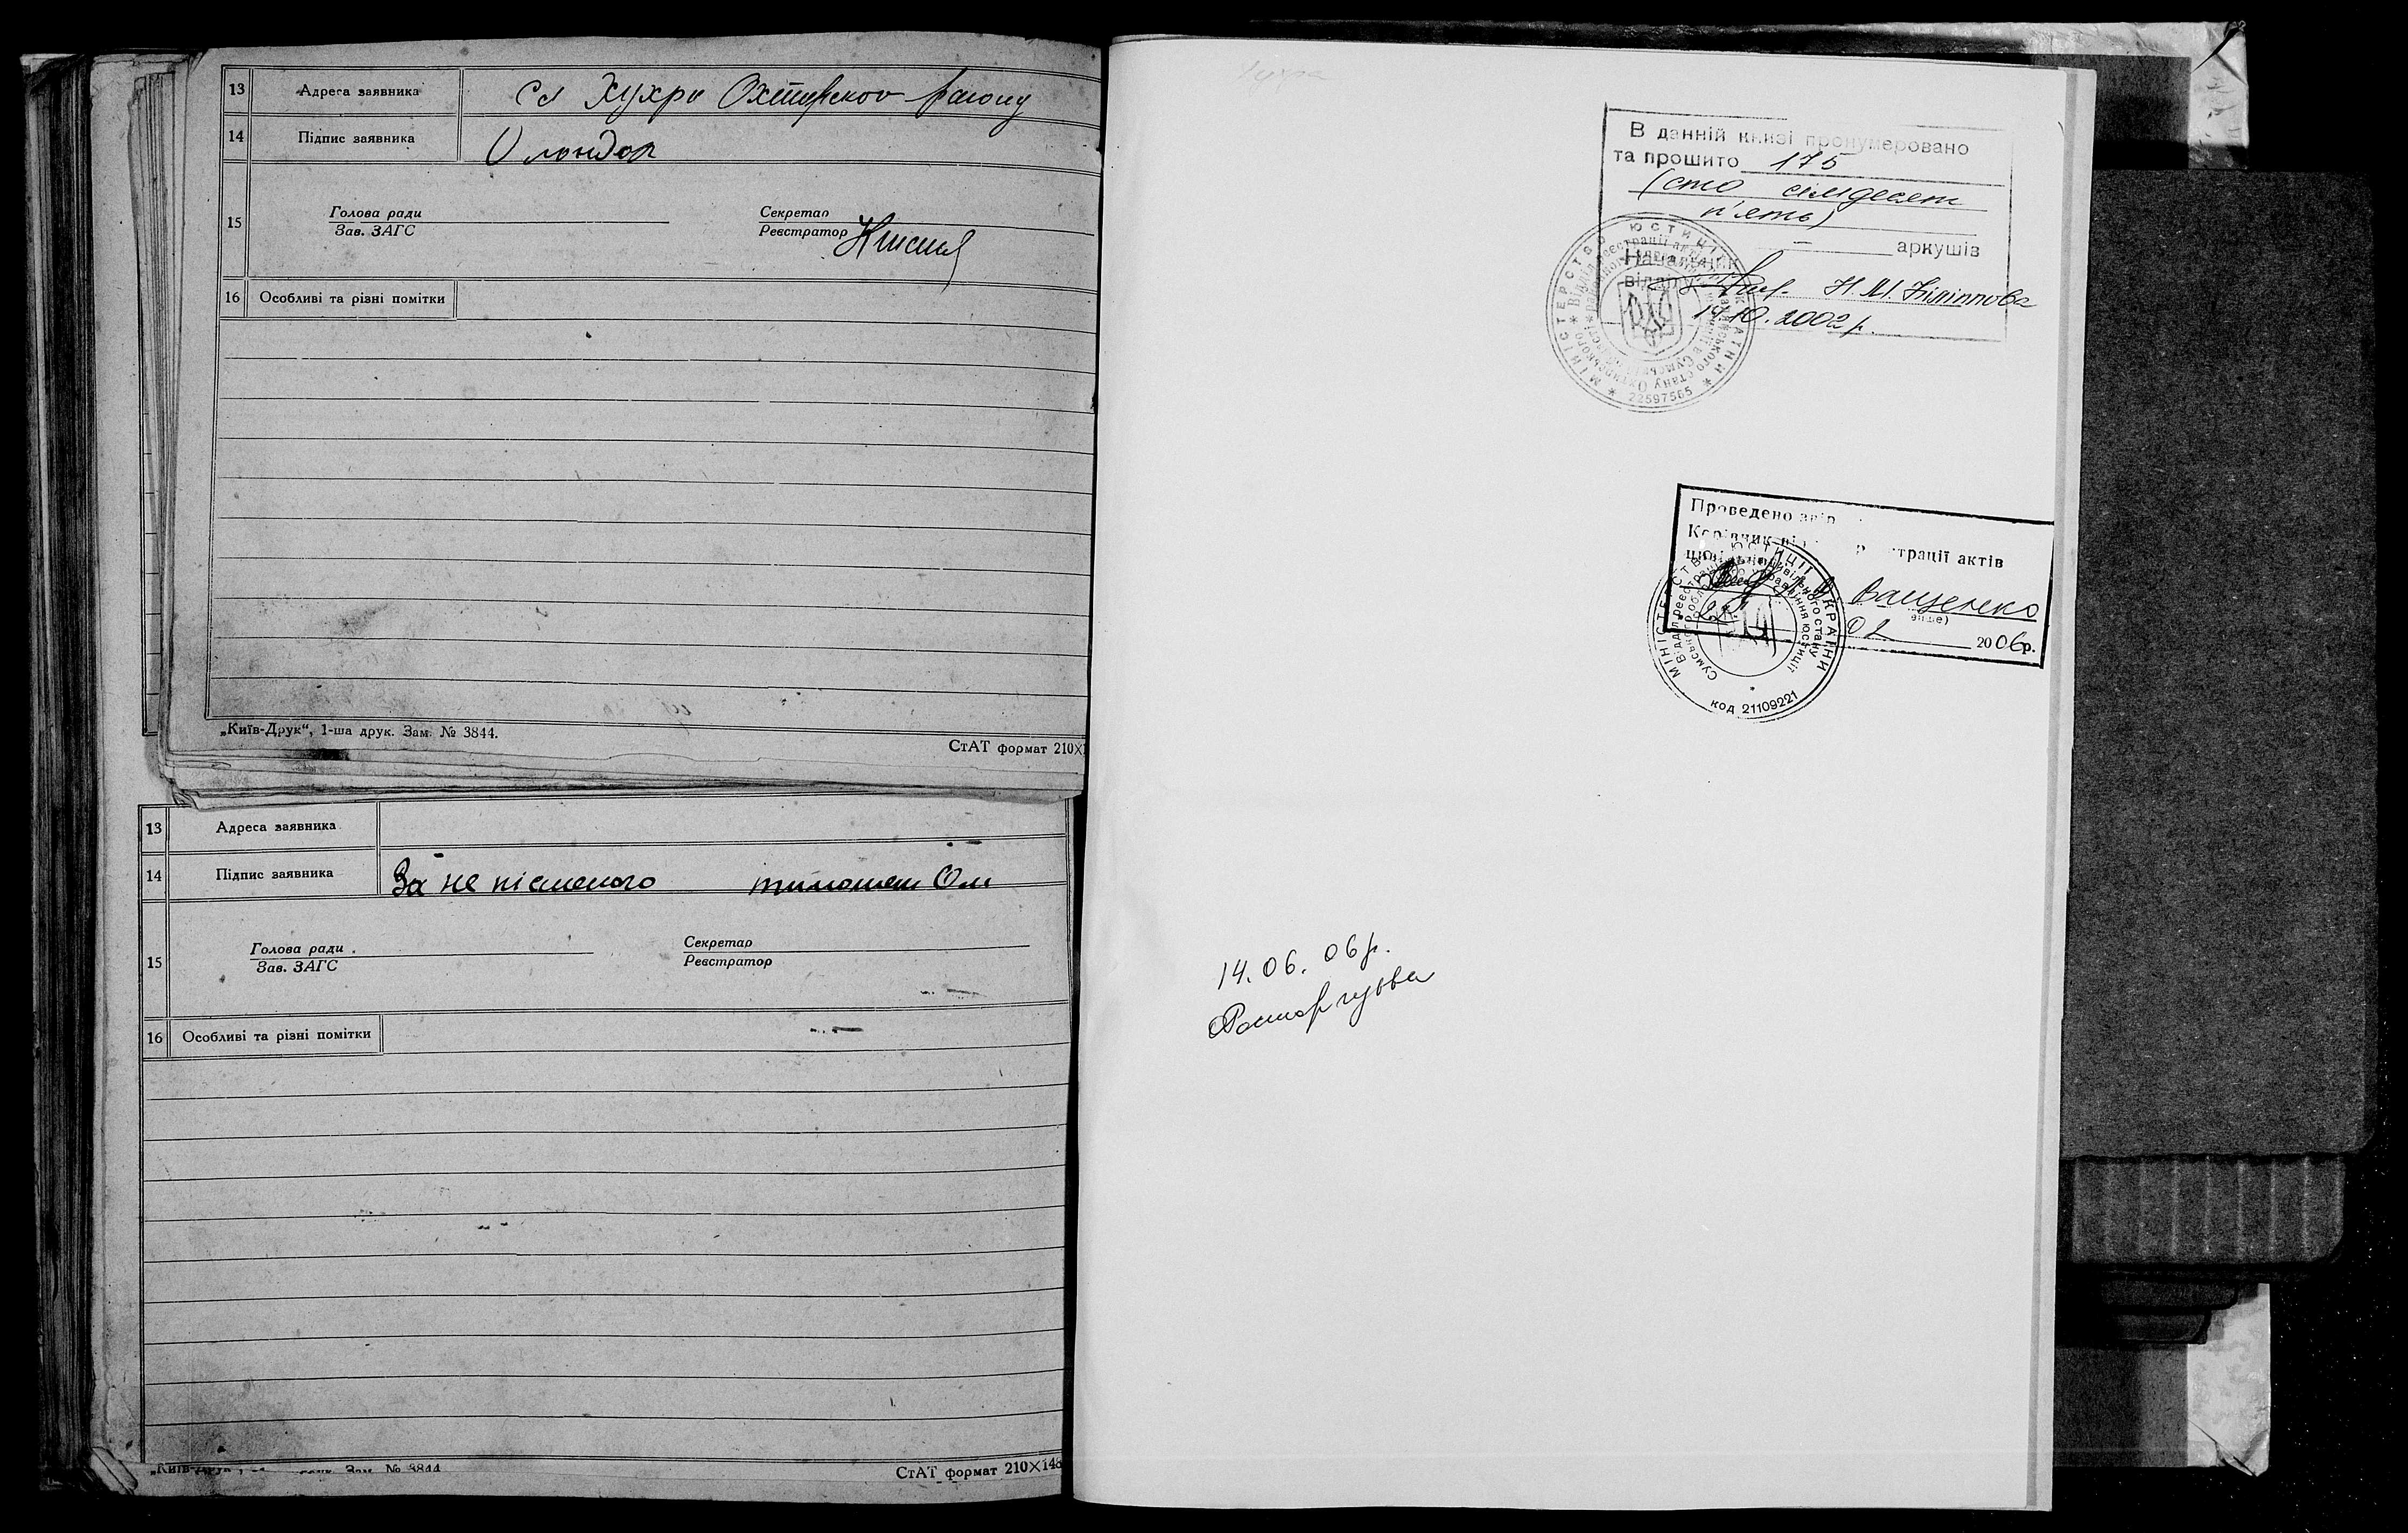 13 Адреса заявника Сл Хухри Охтирсков району
14 Підпис заявника
15
Голова ради
Зав. ЗАГС
Секретар
Реєстратор
16 Особливі та різні помітки
„Київ-Друк“, 1-ша друк. Зам. № 3844.
СтАТ формат 210×
13 Адреса заявника
14 Підпис заявника За не пісменого
15
Голова ради
Зав. ЗАГС
Секретар
Реєстратор
16 Особливі та різні помітки
„Київ-Друк“, друк. Зам. № 3844
СтАТ формат 210×148
В данній книзі пронумеровано
та прошито 175
(сто сімдесят
п'ять)
аркушів
Начальник
відділу Н.М. Філіппова
10.2002р.
22597565
Проведено
Керівник реєстрації актів
Ващенко
02 2006р.
МІНІСТЕРСТВО ЮСТИЦІЇ УКРАЇНИ
код 21109221
14.06.06р.
Расторгуєва